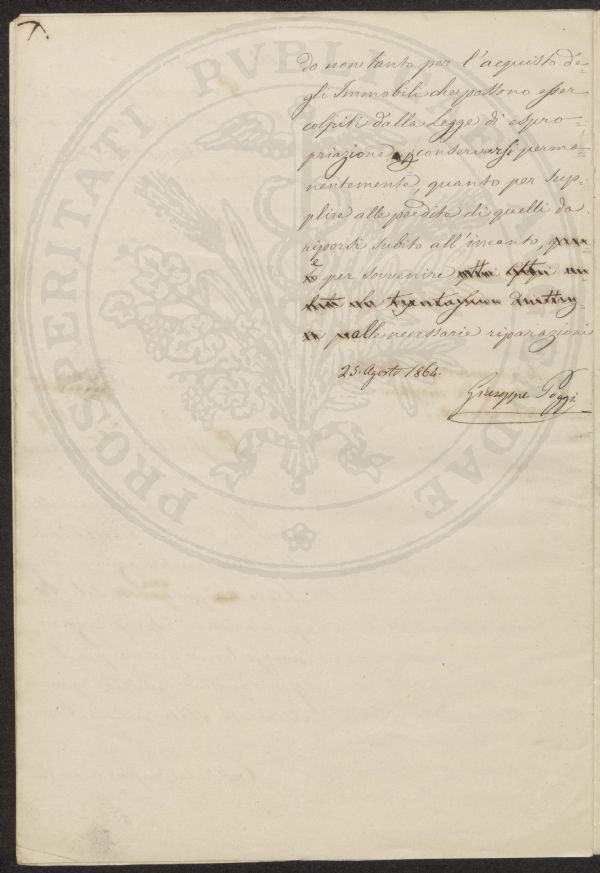 7.
do non tanto per l'acquisto de=
gli Immobili che possono esser
colpiti dalla Legge di espro=
priazione e conservarsi perma=
nentemente, quanto per sup=
plire alle perdite di quelli da
riporsi subito all'incanto,
e per sovvenire
alle necessarie riparazioni
25. Agosto 1864.
Giuseppe Poggi
PROSPERITATI PVBLICAE